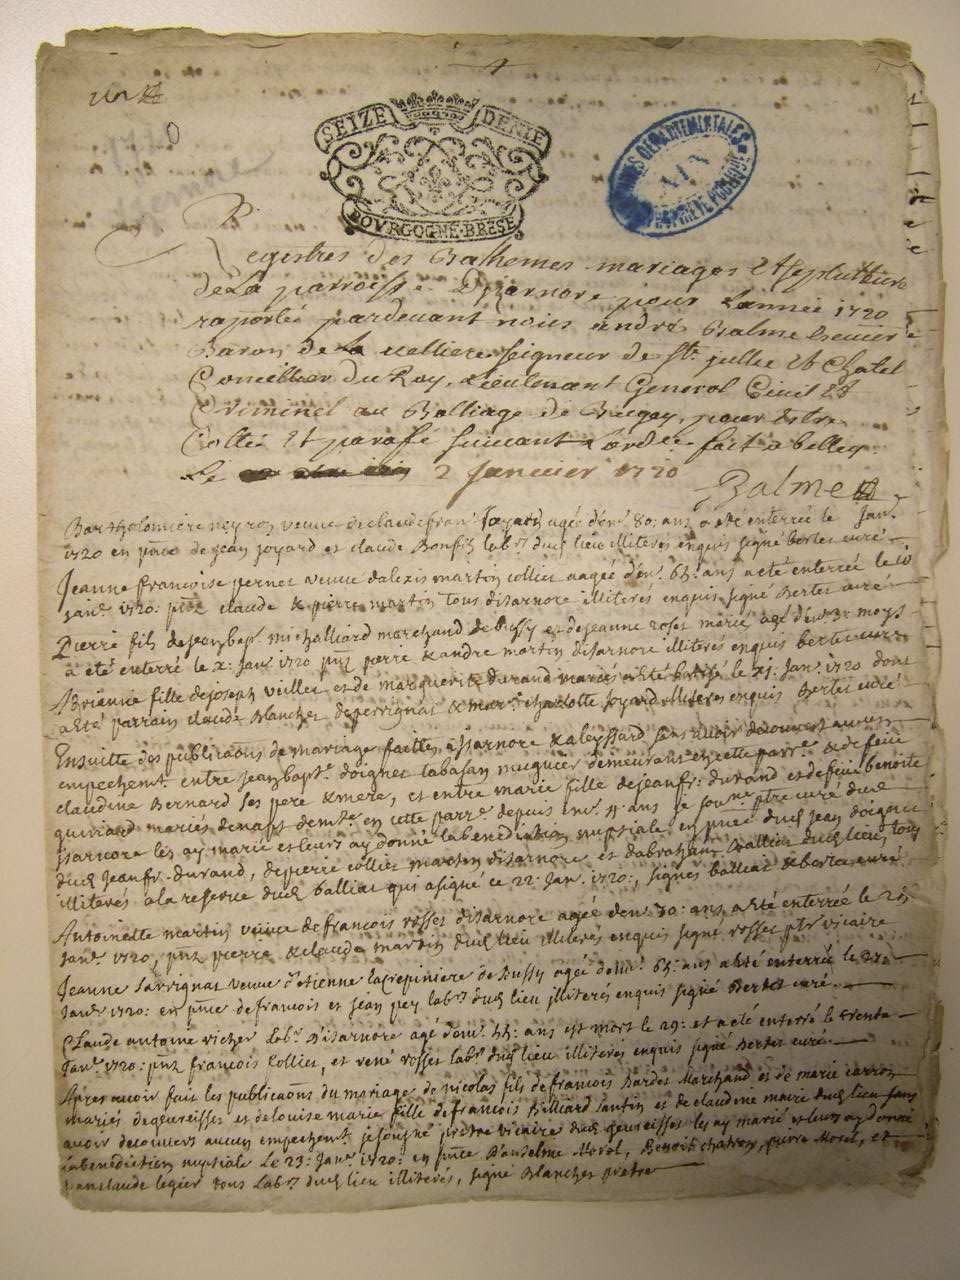 SEIZE DENIE
BOVRGOGNE·BRESE
DEPARTEMENTALES
AIN
PREUVE PUBLIQUE
Registres des Bathemes mariages Et sepulteure
de La parroisse D'izarnore pour Lannée 1720
raportés pardeuant nous andré Balme Escuier
Baron de La uelliere seigneur de St. jullie Et Chatel
Conceillier Du Roy, Lieutenant General Ciuil Et
Criminel au Balliage de Bugey, pour Estre
Cottés Et parafé suiuant Lordce fait a belley
Le 2 Januier 1720
Balme
Bartholomiere neyron veuve de claude fran: Joyard agée d'env: 80: ans a eté enterrée le Janr.
1720 en pnce de jean joyard et claude Bonfils labrs. dud. lieu illiterés enquis signé bertet curé
Jeanne francoise pernet veuve d'alexis martin collier aagée d'env: 65: ans a eté enterrée le 10
janr. 1720: pnt claude & pierre martin tous disarnore illiterés enquis signé Bertet curé
Pierre fils de jean bapt. michalliard marchand de bussy et de jeanne rosset mariés agé d'env: 3: moys
a été enterré le janr. 1720 pnt pierre & andre martin disarnore illiterés enquis bertet curé
Brianne fille de joseph veillet et de marguerite durand mariés a eté batisé le 21: janr. 1720 dont
a eté parrain claude Blanchet de perrignat & mar: charlotte joyard illiterés enquis Bertet curé
Ensuitte des publicaons de mariage faittes a issarnore & aleyssard sans avoir decouvert aucun
empechemt. entre jean bapt. doignet demeurant en cette parre. & de feüe
claudine Bernard ses pere & mere, et entre marie fille de jean fr: durand et de feüe benoite
guiviard mariés demte. en cette parre. depuis env: 4: ans je soune. ptre curé dud.
issarnore les ay marié et leurs ay donné la benediction nuptiale en pnce dud. jean doignet
dud. jean fr: durand, de pierre collier martin disarnore et dabraham balliat dud. lieu, tous
illiterés a la reserve dud. balliat qui a signé ce 22: janr. 1720:, signés balliat & bertet curé
Antoinette martin veuve de francois rosset disarnore agée d'env: 70: ans a eté enterrée le 25
janr. 1720, pnt pierre & claude martin dud. lieu illiterés enquis signé rosset ptre vicaire
Jeanne savrignat veuve d'etienne lacrepiniere de Bussy agée d'env: 65: ans a eté enterrée le 27e
janr. 1720: en pnce de francois et jean pey labrs. dud. lieu illiterés enquis signé Bertet curé
Claude antoine vicher labr. disarnore agé d'env: 55: ans est mort le 29: et a eté enterré le trente
janr. 1720: pnt francois collier, et rené rosset labrs. dud. lieu illiterés enquis signé Bertet curé
Apres avoir fait les publicaons du mariage de nicolas fils de francois Bardet Marchand et de marie carron
mariés de geureisset et de louise marie fille de francois Billiard santin et de claudine maire dud. lieu sans
avoir decouvert aucun empechemt. je sousgné prêtre vicaire dud. geureisset les ay marié et leurs ay donné
la benediction nuptiale Le 23: janr. 1720: en pnce d'anselme Morel, Benoit chatron, pierre Morel, et
jean claude legier tous labrs. dud. lieu illiterés, signé Blanchet prêtre